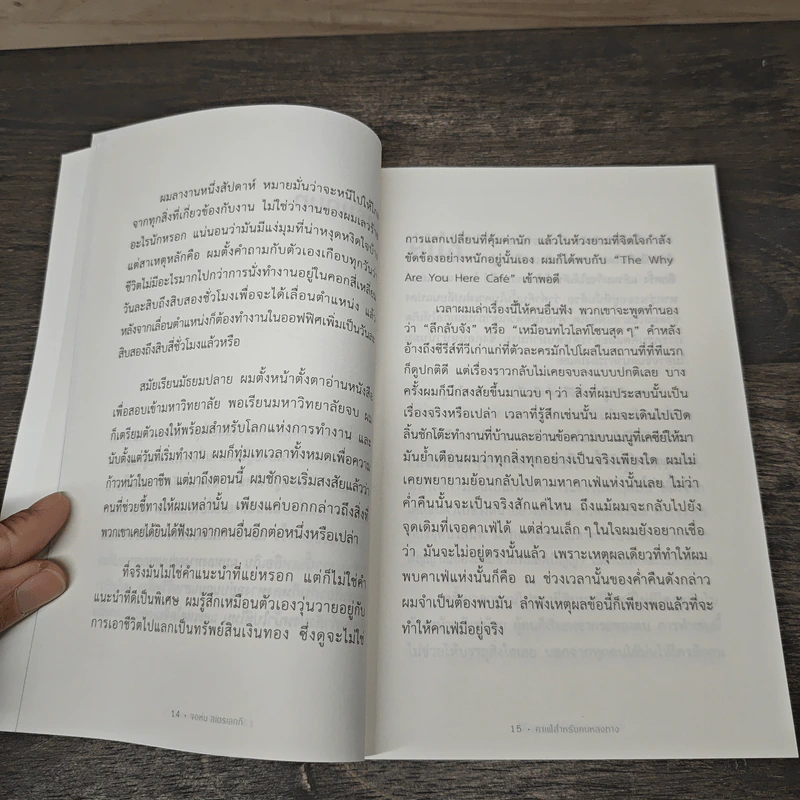 ผมลางานหนึ่งสัปดาห์ หมายมั่นว่าจะหนีไปให้ไกล
จากทุกสิ่งที่เกี่ยวข้องกับงาน ไม่ใช่ว่างานของผมเลวร้าย
อะไรนักหรอก แน่นอนว่ามันมีแง่มุมที่น่าหงุดหงิดใจบ้าง
แต่สาเหตุหลักคือ ผมตั้งคำถามกับตัวเองเกือบทุกวันว่า
ชีวิตไม่มีอะไรมากไปกว่าการนั่งทำงานอยู่ในคอกสี่เหลี่ยม
วันละสิบถึงสิบสองชั่วโมงเพื่อจะได้เลื่อนตำแหน่ง แล้ว
หลังจากเลื่อนตำแหน่งก็ต้องทำงานในออฟฟิศเพิ่มเป็นวันละ
สิบสองถึงสิบสี่ชั่วโมงแล้วหรือ
สมัยเรียนมัธยมปลาย ผมตั้งหน้าตั้งตาอ่านหนังสือ
เพื่อสอบเข้ามหาวิทยาลัย พอเรียนมหาวิทยาลัยจบ ผม
ก็เตรียมตัวเองให้พร้อมสำหรับโลกแห่งการทำงาน และ
นับตั้งแต่วันที่เริ่มทำงาน ผมก็ทุ่มเทเวลาทั้งหมดเพื่อความ
ก้าวหน้าในอาชีพ แต่มาถึงตอนนี้ ผมชักจะเริ่มสงสัยแล้วว่า
คนที่ช่วยชี้ทางให้ผมเหล่านั้น เพียงแค่บอกกล่าวถึงสิ่งที่
พวกเขาเคยได้ยินได้ฟังมาจากคนอื่นอีกต่อหนึ่งหรือเปล่า
ที่จริงมันไม่ใช่คำแนะนำที่แย่หรอก แต่ก็ไม่ใช่คำ
แนะนำที่ดีเป็นพิเศษ ผมรู้สึกเหมือนตัวเองวุ่นวายอยู่กับ
การเอาชีวิตไปแลกเป็นทรัพย์สินเงินทอง ซึ่งดูจะไม่ใช่
14 • จอห์น สเตรเลกกี
การแลกเปลี่ยนที่คุ้มค่านัก แล้วในห้วงยามที่จิตใจกำลัง
ขัดข้องอย่างหนักอยู่นั้นเอง ผมก็ได้พบกับ “The Why
Are You Here Café” เข้าพอดี
เวลาผมเล่าเรื่องนี้ให้คนอื่นฟัง พวกเขาจะพูดทำนอง
ว่า “ลึกลับจัง” หรือ “เหมือนทไวไลท์โซนสุด ๆ” คำหลัง
อ้างถึงซีรีส์ทีวีเก่าแก่ที่ตัวละครมักไปโผล่ในสถานที่ที่ทีแรก
ก็ดูปกติดี แต่เรื่องราวกลับไม่เคยจบลงแบบปกติเลย บาง
ครั้งผมก็นึกสงสัยขึ้นมาแวบ ๆ ว่า สิ่งที่ผมประสบนั้นเป็น
เรื่องจริงหรือเปล่า เวลาที่รู้สึกเช่นนั้น ผมจะเดินไปเปิด
ลิ้นชักโต๊ะทำงานที่บ้านและอ่านข้อความบนเมนูที่เคซีย์ให้มา
มันย้ำเตือนผมว่าทุกสิ่งทุกอย่างเป็นจริงเพียงใด ผมไม่
เคยพยายามย้อนกลับไปตามหาคาเฟ่แห่งนั้นเลย ไม่ว่า
ค่ำคืนนั้นจะเป็นจริงสักแค่ไหน ถึงแม้ผมจะกลับไปยัง
จุดเดิมที่เจอคาเฟ่ได้ แต่ส่วนเล็ก ๆ ในใจผมยังอยากเชื่อ
ว่า มันจะไม่อยู่ตรงนั้นแล้ว เพราะเหตุผลเดียวที่ทำให้ผม
พบคาเฟ่แห่งนั้นก็คือ ณ ช่วงเวลานั้นของค่ำคืนดังกล่าว
ผมจำเป็นต้องพบมัน ลำพังเหตุผลข้อนี้ก็เพียงพอแล้วที่จะ
ทำให้คาเฟ่มีอยู่จริง
15 • คาเฟ่สำหรับคนหลงทาง